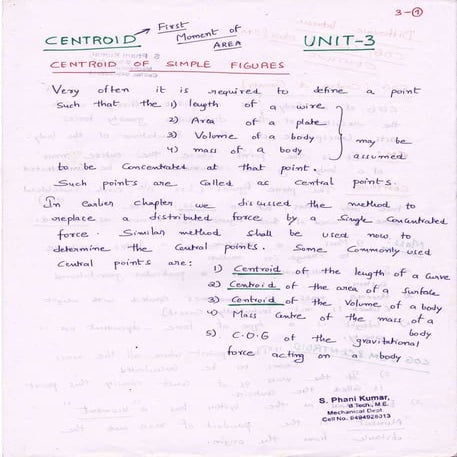 3-①
CENTROID → First Moment of AREA UNIT-3
CENTROID OF SIMPLE FIGURES
Very often it is required to define a point
such that the 1) length of a wire
2) Area of a plate
3) Volume of a body
4) mass of a body
may be assumed
to be Concentrated at that point.
Such points are Called as Central points.
In earlier chapter we discussed the method to
replace a distributed force by a Single Concentrated
force. Similar method shall be used now to
determine the Central points. Some Commonly used
Central points are:
1) Centroid of the length of a Curve
2) Centroid of the area of a Surface
3) Centroid of the Volume of a body
4) Mass Centre of the mass of a body
5) C.O.G of the gravitational
force acting on a body
S. Phani Kumar,
B.Tech., M.E.
Mechanical Dept
Cell No. 9494928313